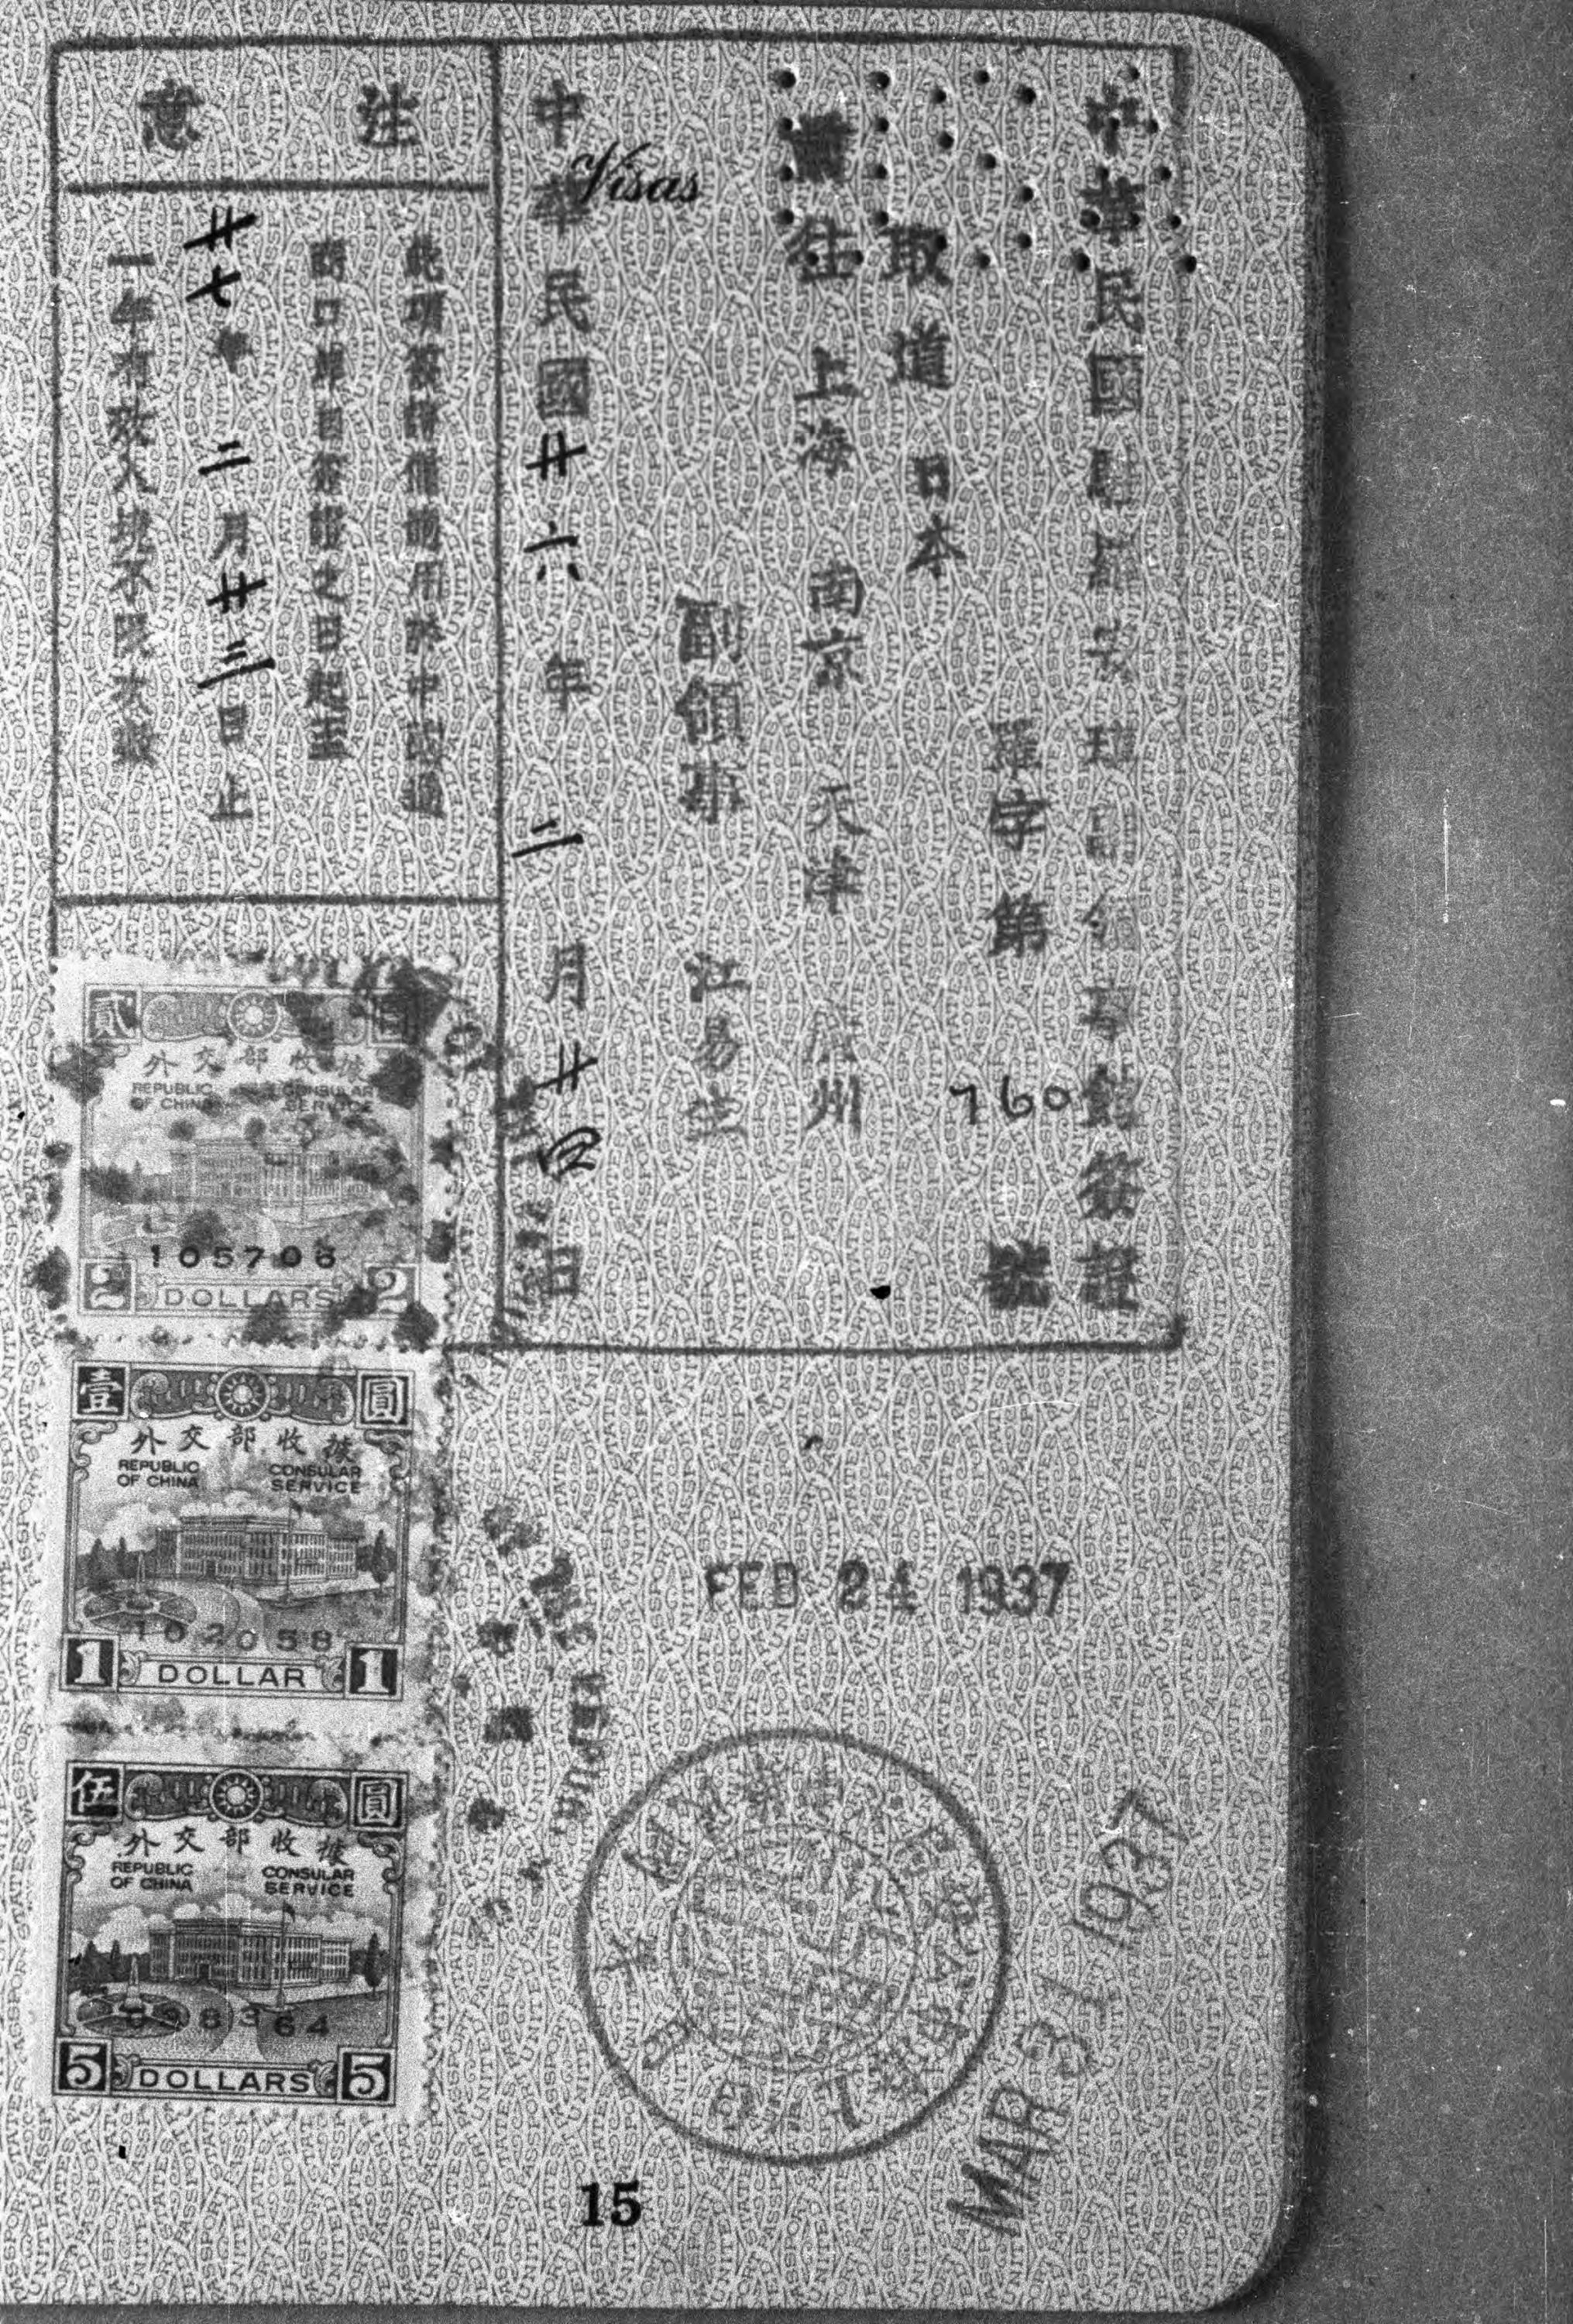 Visas
中華民國駐羅安琪副領事館簽證
羅字第 760 號
取道日本
前往 上海 南京 天津 廣州
副領事 江易生
中華民國廿六年二月廿四日
注意
此項簽證僅適用於中國通
商口岸自簽證之日起至
廿七年二月廿三日止
貳
外交部收據
REPUBLIC OF CHINA
CONSULAR SERVICE
105706
2 DOLLARS 2
壹 圓
外交部收據
REPUBLIC OF CHINA
CONSULAR SERVICE
102058
1 DOLLAR 1
伍 圓
外交部收據
REPUBLIC OF CHINA
CONSULAR SERVICE
5 DOLLARS 5
FEB 24 1937
MAR 31 1937
15